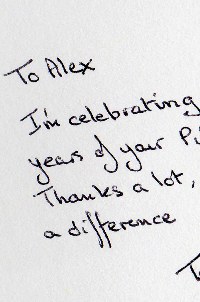 To Alex
I'm celebrating
years of your
Thanks a lot,
a difference